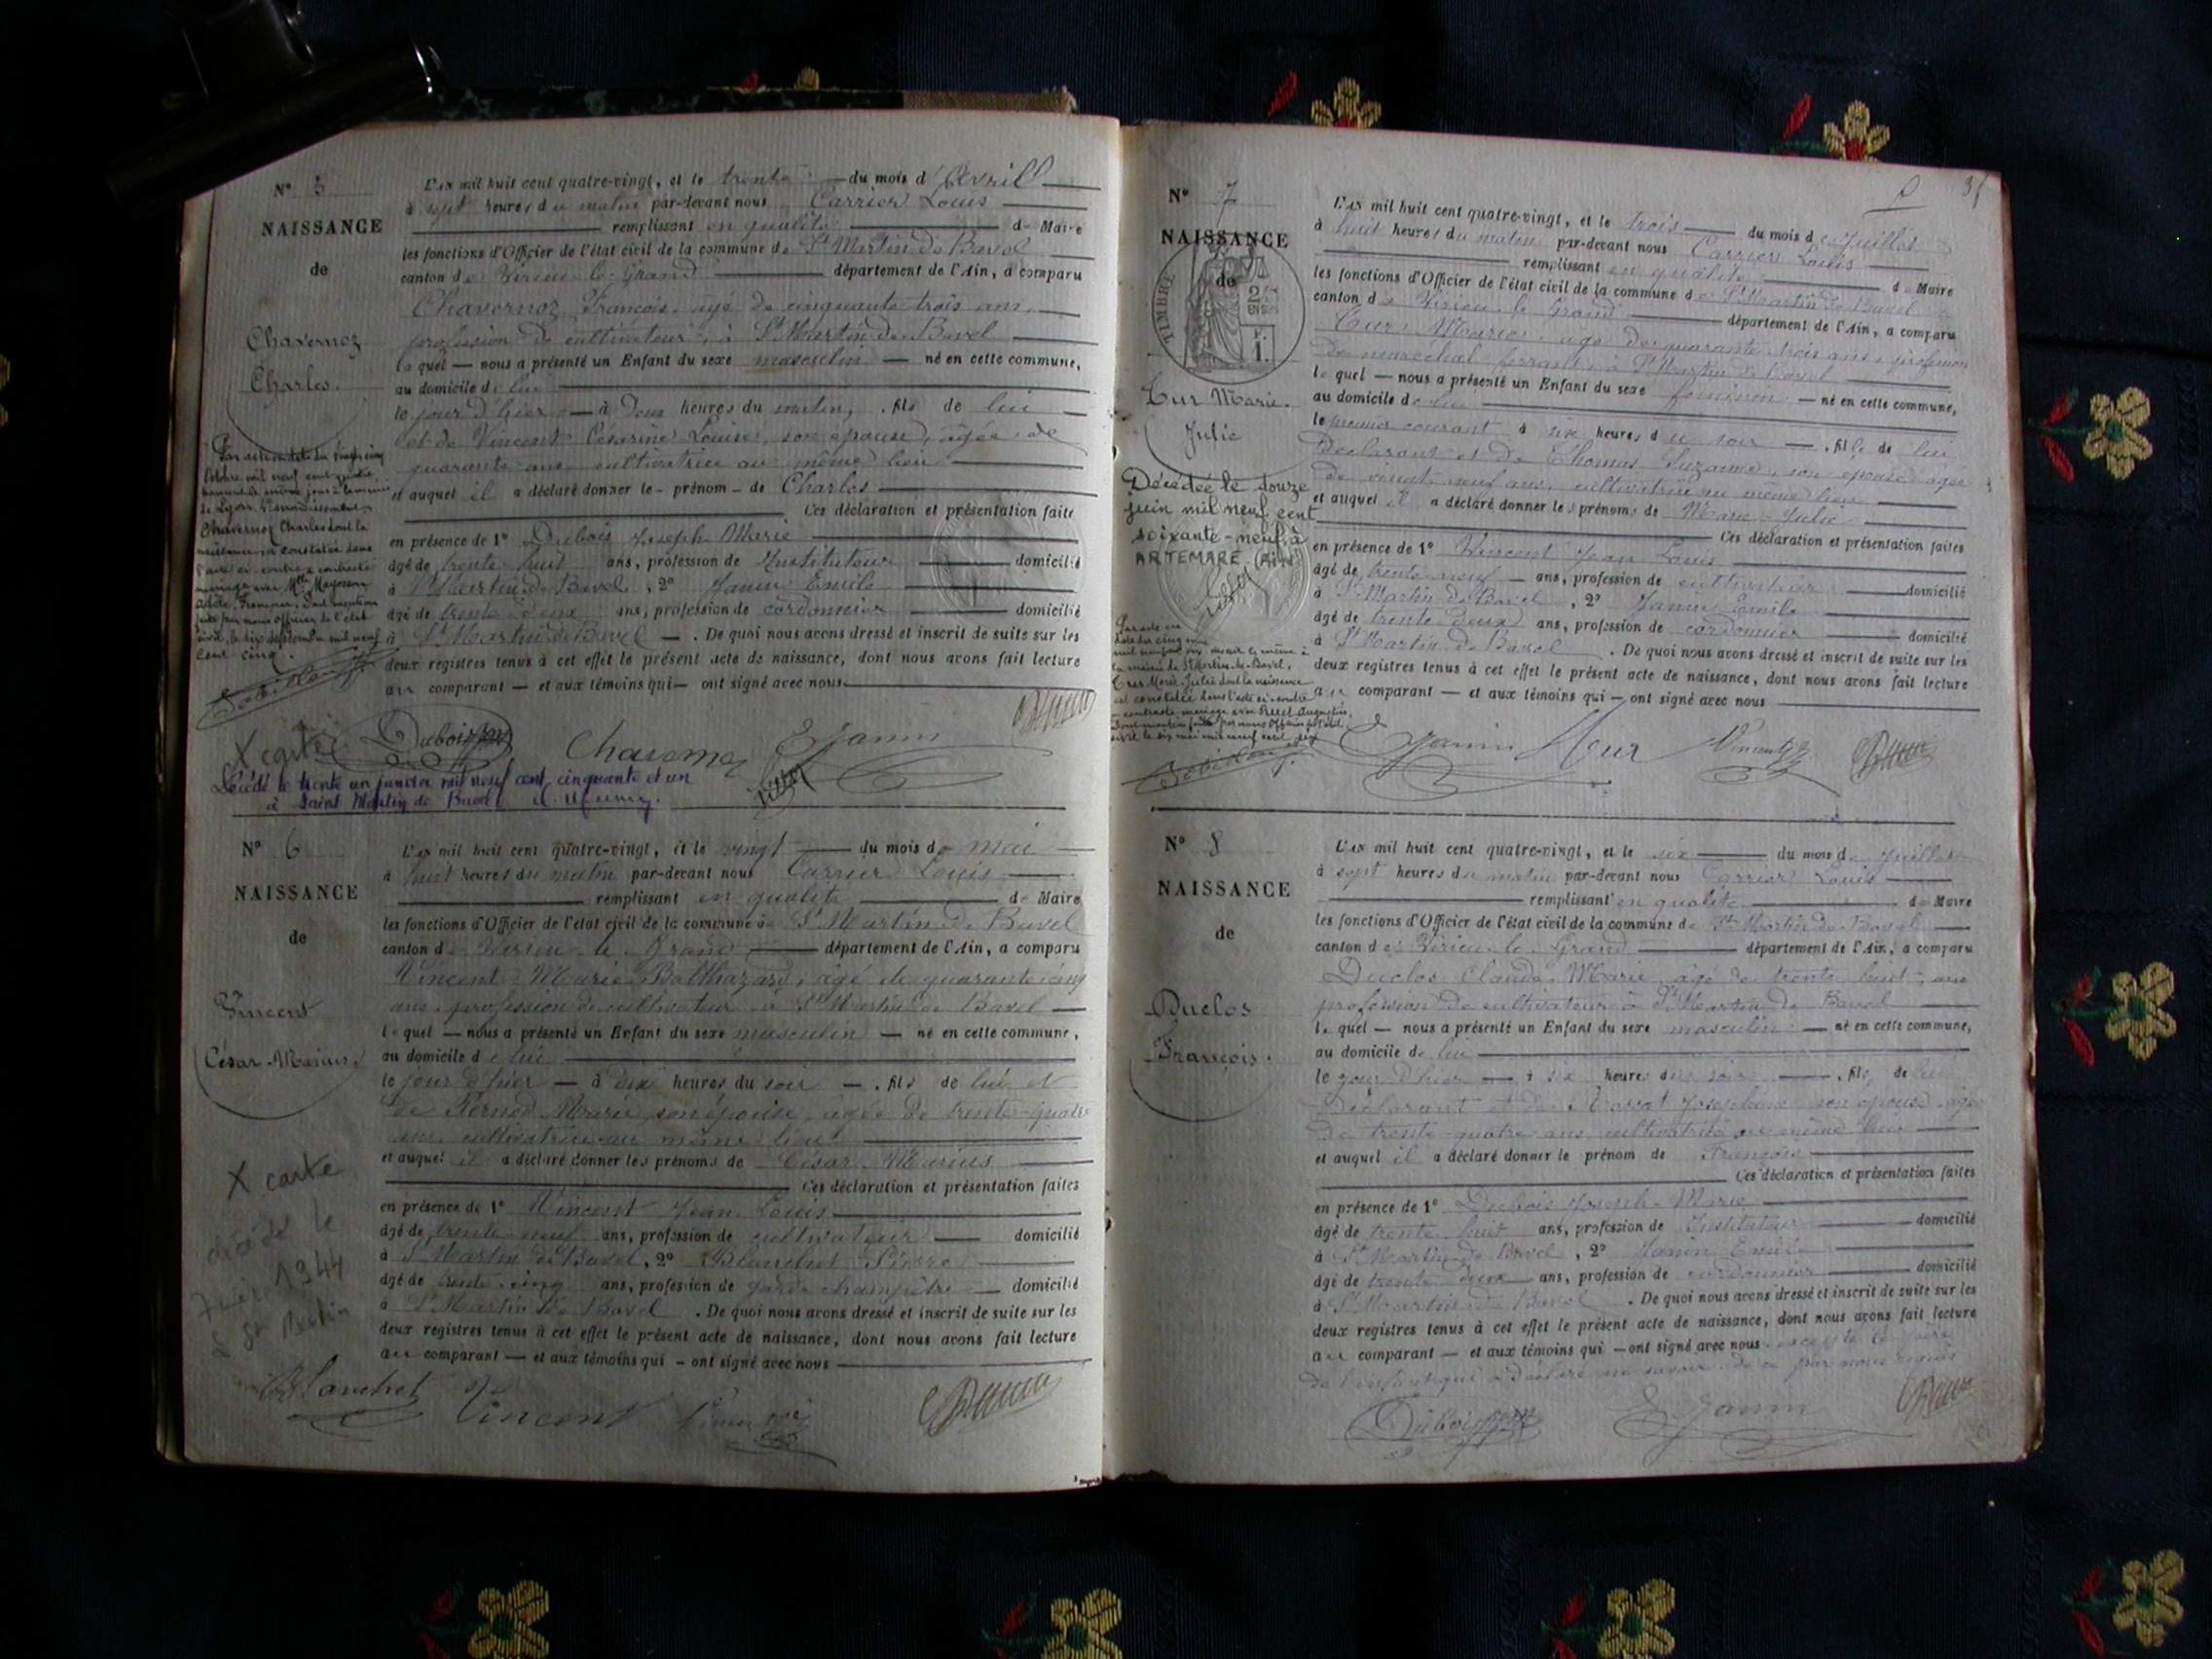 N° 5
NAISSANCE
de
Chavernoz
Charles.
L'an mil huit cent quatre-vingt, et le trente du mois d'Avril
à sept heures du matin par-devant nous Carrier Louis
remplissant en qualité de Maire
les fonctions d'Officier de l'état civil de la commune de St Martin de Bavel
canton de Virieu le Grand département de l'Ain, a comparu
Chavernoz François, âgé de cinquante trois ans,
profession de cultivateur, à St Martin de Bavel
lequel nous a présenté un Enfant du sexe masculin né en cette commune,
au domicile de lui
le jour d'hier à deux heures du matin, fils de lui
et de Vincent Césarine Louise, son épouse, âgée de
quarante ans cultivatrice au même lieu
et auquel il a déclaré donner le prénom de Charles
Ces déclaration et présentation faite
en présence de 1° Dubois Joseph Marie
âgé de trente huit ans, profession de Instituteur domicilié
à St Martin de Bavel, 2° Janin Emile
âgé de trente deux ans, profession de cordonnier domicilié
à St Martin de Bavel. De quoi nous avons dressé et inscrit de suite sur les
deux registres tenus à cet effet le présent acte de naissance, dont nous avons fait lecture
au comparant et aux témoins qui ont signé avec nous
Par acte en date du vingt cinq
Octobre mil neuf cent quatre
de Lyon arrondissement
Chavernoz Charles dont la
naissance est constatée dans
l'acte ci-contre a contracté
mariage avec Melle
dont mention
faite par nous officier de l'état
civil, le dix septembre mil neuf
cent cinq.
X carte Dubois Chavernoz E Janin
Décédé le trente un janvier mil neuf cent cinquante et un
à Saint Martin de Bavel
N° 6
NAISSANCE
de
Vincent
César-Marius.
L'an mil huit cent quatre-vingt, et le vingt du mois de mai
à huit heures du matin par-devant nous Carrier Louis
remplissant en qualité de Maire
les fonctions d'Officier de l'état civil de la commune de St Martin de Bavel
canton de Virieu le Grand département de l'Ain, a comparu
Vincent Marie Balthazard, âgé de quarante cinq
ans, profession de cultivateur à St Martin de Bavel
lequel nous a présenté un Enfant du sexe masculin né en cette commune,
au domicile de lui
le jour d'hier à dix heures du soir fils de lui et
de Pernod Marie, son épouse, âgée de trente-quatre
ans, cultivatrice au même lieu
et auquel il a déclaré donner les prénoms de César Marius
Ces déclaration et présentation faites
en présence de 1° Vincent Jean Louis
âgé de trente neuf ans, profession de cultivateur domicilié
à St Martin de Bavel, 2° Blanchet Pierre
âgé de trente cinq ans, profession de garde champêtre domicilié
à St Martin de Bavel. De quoi nous avons dressé et inscrit de suite sur les
deux registres tenus à cet effet le présent acte de naissance, dont nous avons fait lecture
au comparant et aux témoins qui ont signé avec nous
X carte
décédé le
1944
à St Martin
Blanchet Vincent
N° 7
NAISSANCE
de
TIMBRE
Cur Marie.
Julie
Décédée le douze
juin mil neuf cent
soixante-neuf à
ARTEMARE (Ain)
35
L'an mil huit cent quatre-vingt, et le trois du mois de Juillet
à huit heures du matin par-devant nous Carrier Louis
remplissant en qualité de Maire
les fonctions d'Officier de l'état civil de la commune de St Martin de Bavel
canton de Virieu le Grand département de l'Ain, a comparu
Cur Marie, âgé de quarante trois ans, profession
de maréchal ferrant, à St Martin de Bavel
lequel nous a présenté un Enfant du sexe féminin né en cette commune,
au domicile de lui
le premier courant à six heures du soir fille de lui
Déclarant et de Thomas Suzanne, son épouse âgée
de vingt neuf ans, cultivatrice au même lieu
et auquel il a déclaré donner les prénoms de Marie Julie
Ces déclaration et présentation faites
en présence de 1° Vincent Jean Louis
âgé de trente neuf ans, profession de cultivateur domicilié
à St Martin de Bavel, 2° Janin Emile
âgé de trente deux ans, profession de cordonnier domicilié
à St Martin de Bavel. De quoi nous avons dressé et inscrit de suite sur les
deux registres tenus à cet effet le présent acte de naissance, dont nous avons fait lecture
au comparant et aux témoins qui ont signé avec nous
Par acte en
date du cinq mai
la mairie de St Martin-de-Bavel,
Cur Marie Julie dont la naissance
est constatée dans l'acte ci-contre
a contracté mariage avec Augustin,
dont mention faite par nous Officier de l'état
civil le six mai mil neuf cent six
E Janin Cur Vincent
N° 8
NAISSANCE
de
Duclos
François.
L'an mil huit cent quatre-vingt, et le six du mois de Juillet
à sept heures du matin par-devant nous Carrier Louis
remplissant en qualité de Maire
les fonctions d'Officier de l'état civil de la commune de St Martin de Bavel
canton de Virieu le Grand département de l'Ain, a comparu
Duclos Claude Marie âgé de trente huit ans
profession de cultivateur à St Martin de Bavel
lequel nous a présenté un Enfant du sexe masculin né en cette commune,
au domicile de lui
le jour d'hier à six heures du soir fils de lui
déclarant et de Joséphine son épouse âgée
de trente-quatre ans cultivatrice au même lieu
et auquel il a déclaré donner le prénom de François
Ces déclaration et présentation faites
en présence de 1° Dubois Joseph-Marie
âgé de trente huit ans, profession de Instituteur domicilié
à St Martin de Bavel, 2° Janin Emile
âgé de trente deux ans, profession de cordonnier domicilié
à St Martin de Bavel. De quoi nous avons dressé et inscrit de suite sur les
deux registres tenus à cet effet le présent acte de naissance, dont nous avons fait lecture
au comparant et aux témoins qui ont signé avec nous excepté le père
de l'enfant qui a déclaré ne savoir de ce par nous requis
Dubois E Janin